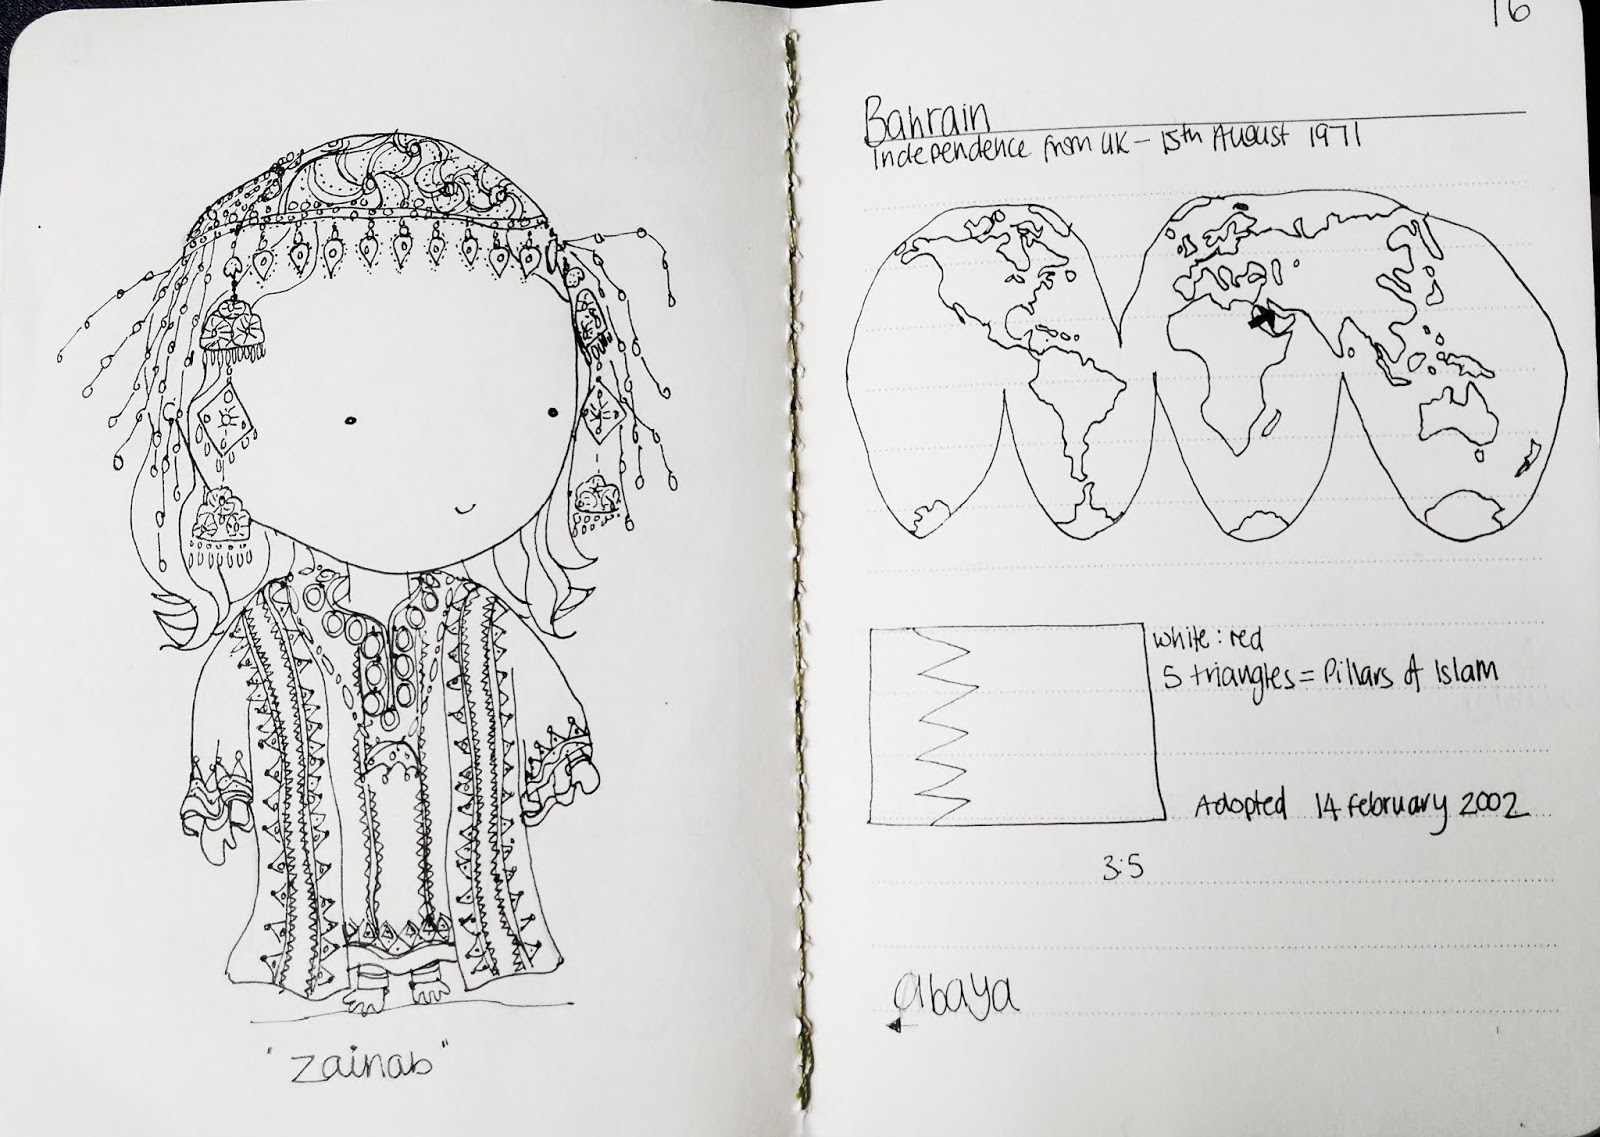 "Zainab"
16
Bahrain
Independence from UK – 15th August 1971
white : red
5 triangles = Pillars of Islam
Adopted 14 February 2002
3:5
abaya